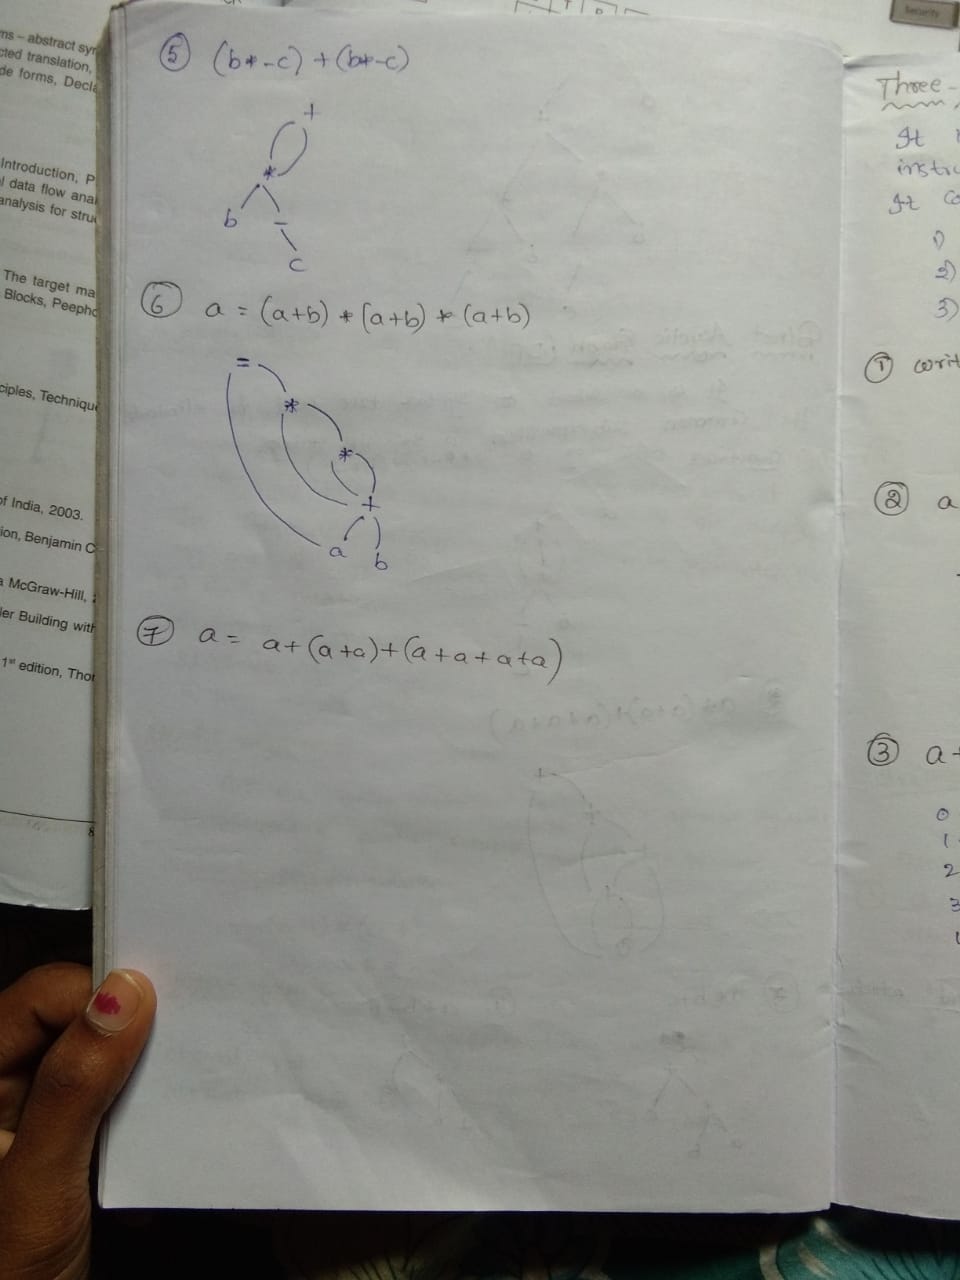 Security
ms – abstract syn
cted translation,
de forms, Decla
Introduction, P
l data flow ana
analysis for stru
The target ma
Blocks, Peepho
ciples, Technique
of India, 2003.
ion, Benjamin C
a McGraw-Hill,
ler Building with
1st edition, Thor
8
⑤ (b*-c) + (b*-c)
+
*
b -
c
⑥ a = (a+b) * (a+b) * (a+b)
=
*
*
+
a b
⑦ a = a+(a+a)+(a+a+a+a)
Three -
It
instru
It co
1)
2)
3)
① writ
② a
③ a+
0
1
2
3